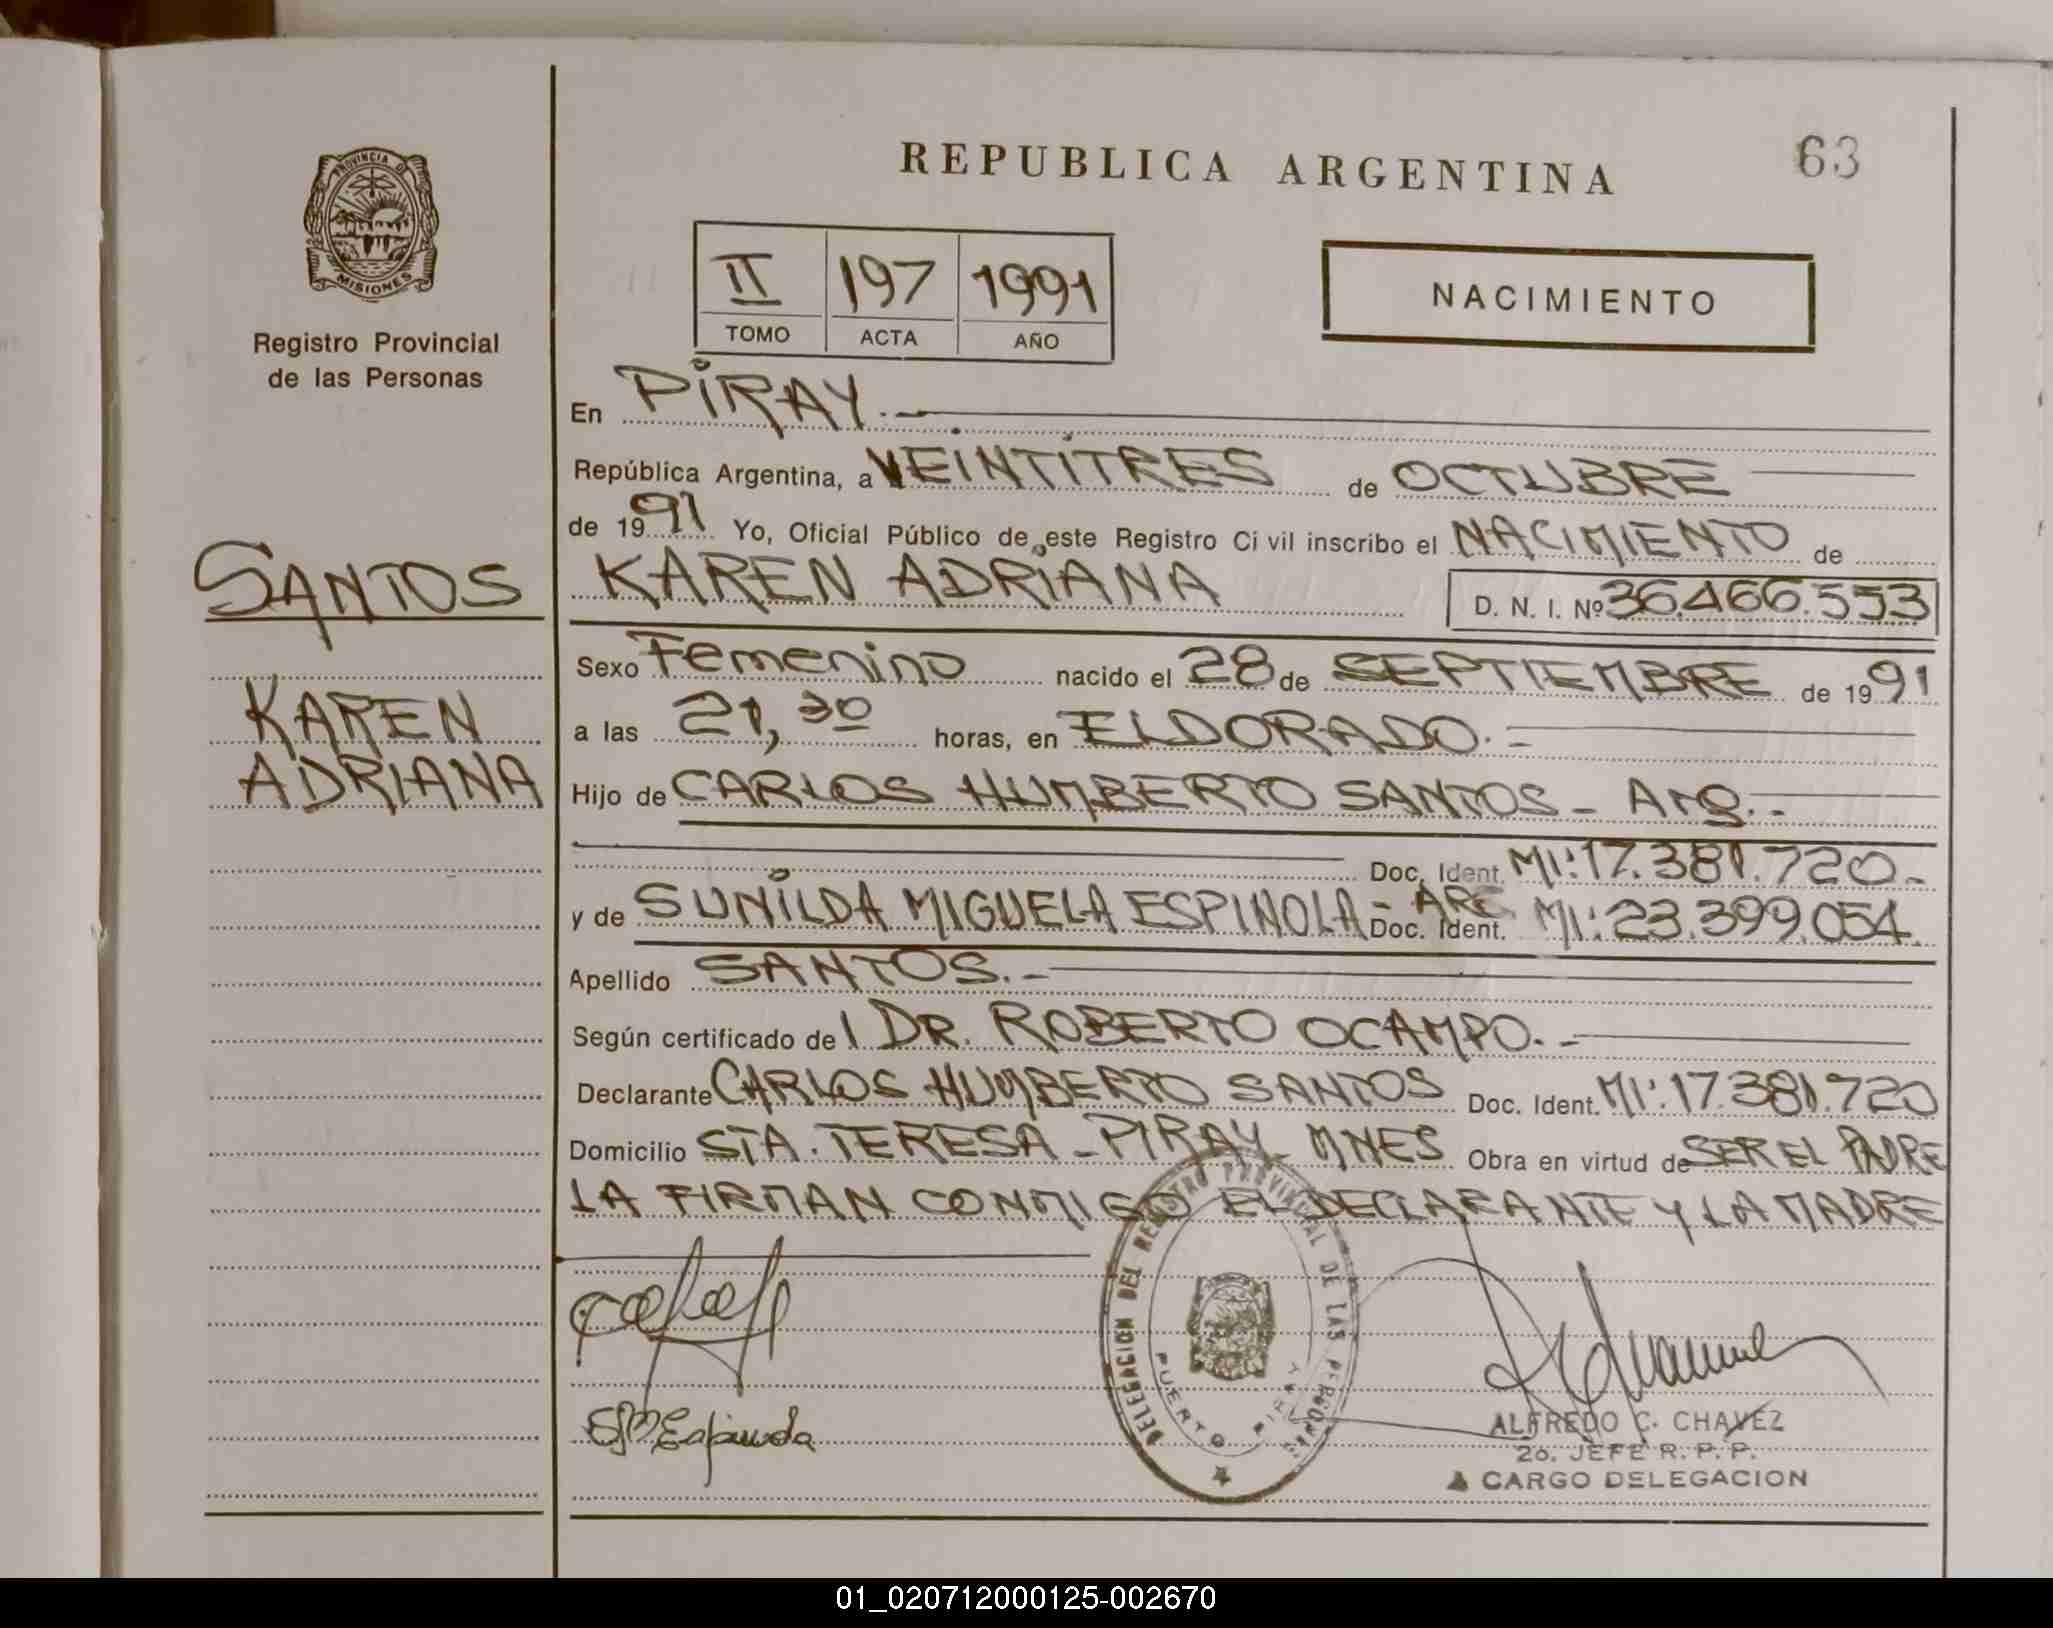 PROVINCIA D
MISIONES
Registro Provincial
de las Personas
SANTOS
KAREN
ADRIANA
REPUBLICA ARGENTINA
63
II 197 1991
TOMO ACTA AÑO
NACIMIENTO
En PIRAY.-
República Argentina, a VEINTITRES de OCTUBRE
de 1991 Yo, Oficial Público de este Registro Civil inscribo el NACIMIENTO de
KAREN ADRIANA D. N. I. Nº 36.466.553
Sexo Femenino nacido el 28 de SEPTIEMBRE de 1991
a las 21,30 horas, en ELDORADO.-
Hijo de CARLOS HUMBERTO SANTOS - Arg.-
Doc. Ident. MI:17.381.720-
y de SUNILDA MIGUELA ESPINOLA - ARG Doc. Ident. MI:23.399.054.
Apellido SANTOS.-
Según certificado de DR. ROBERTO OCAMPO.-
Declarante CARLOS HUMBERTO SANTOS Doc. Ident. MI:17.381.720
Domicilio STA. TERESA - PIRAY - MNES Obra en virtud de SER EL PADRE
LA FIRMAN CONMIGO EL DECLARANTE Y LA MADRE
DELEGACION DEL REGISTRO PROVINCIAL DE LAS PERSONAS
PUERTO PIRAY
Espinola
ALFREDO C. CHAVEZ
2o. JEFE R. P. P.
A CARGO DELEGACION
01_020712000125-002670